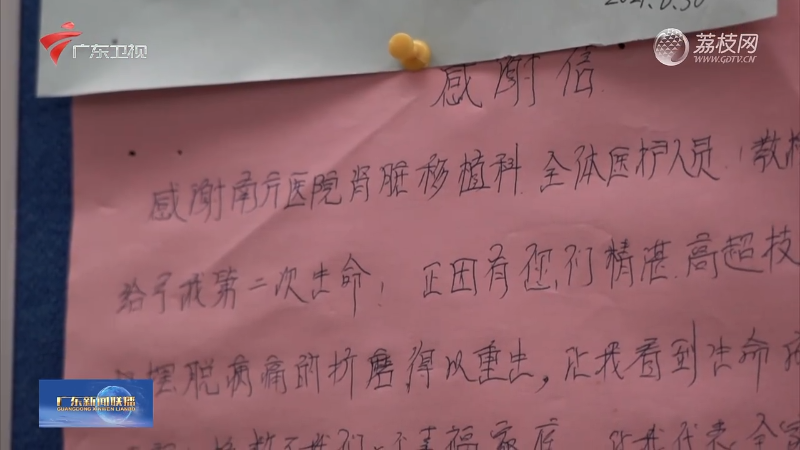 2021.6.30
广东卫视
荔枝网
WWW.GDTV.CN
感谢信
感谢南方医院肾脏移植科全体医护人员,教
给予我第二次生命! 正因有您们精湛高超技
摆脱病痛的折磨得以重生,让我看到生命
我们一个幸福家庭 让我代表全家
广东新闻联播
GUANGDONG XINWEN LIANBO